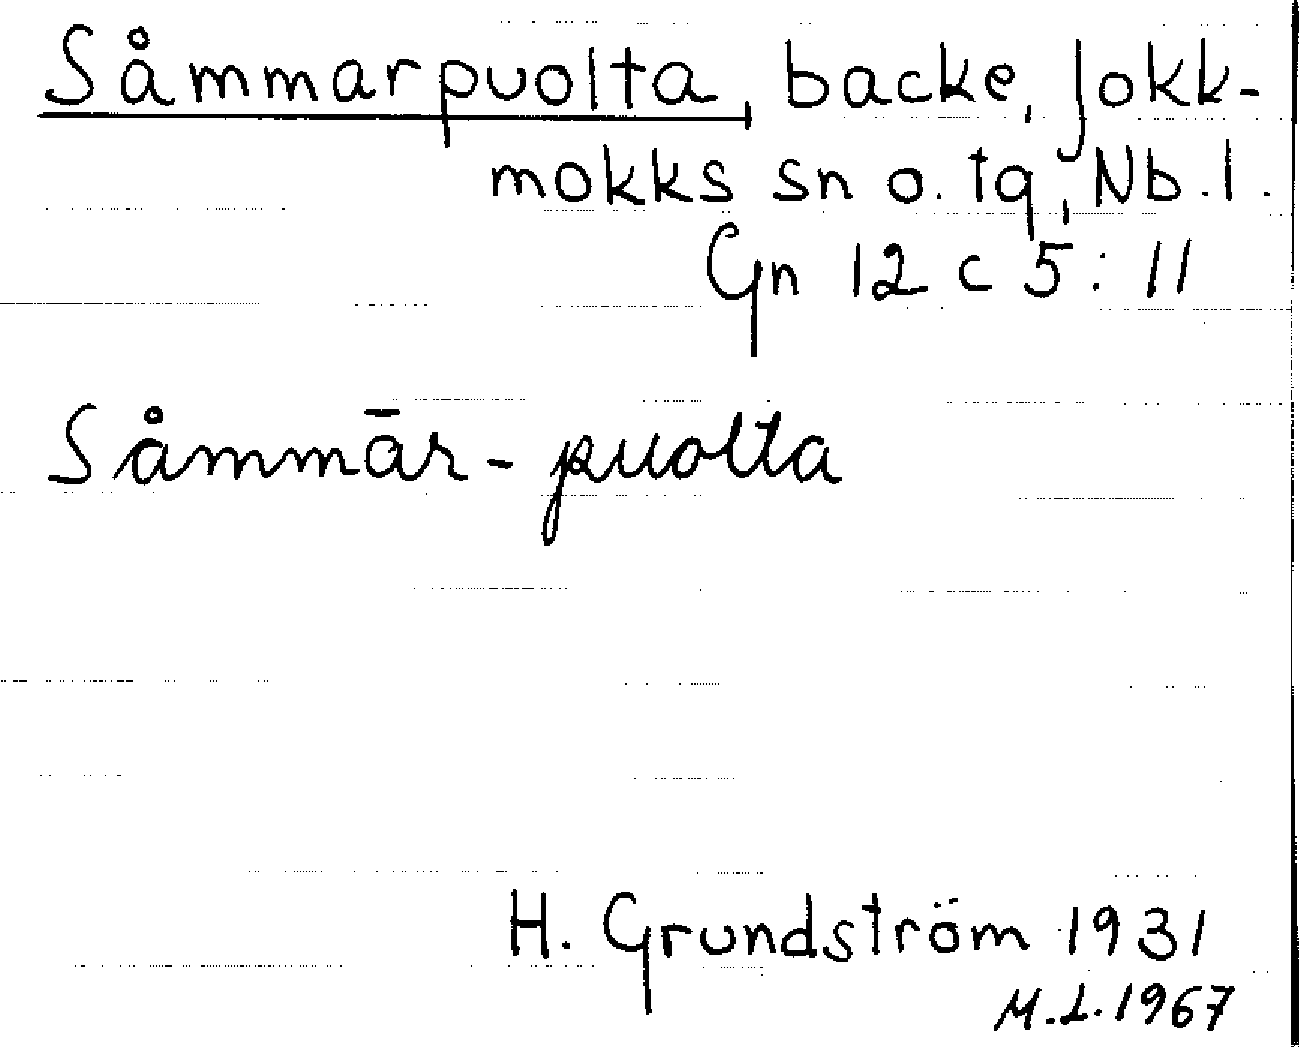 Såmmarpuolta, backe, Jokk-
mokks sn o. tg, Nb. l.
Gn 12 c 5:11
Såmmār-puolta
H. Grundström 1931
M.L. 1967